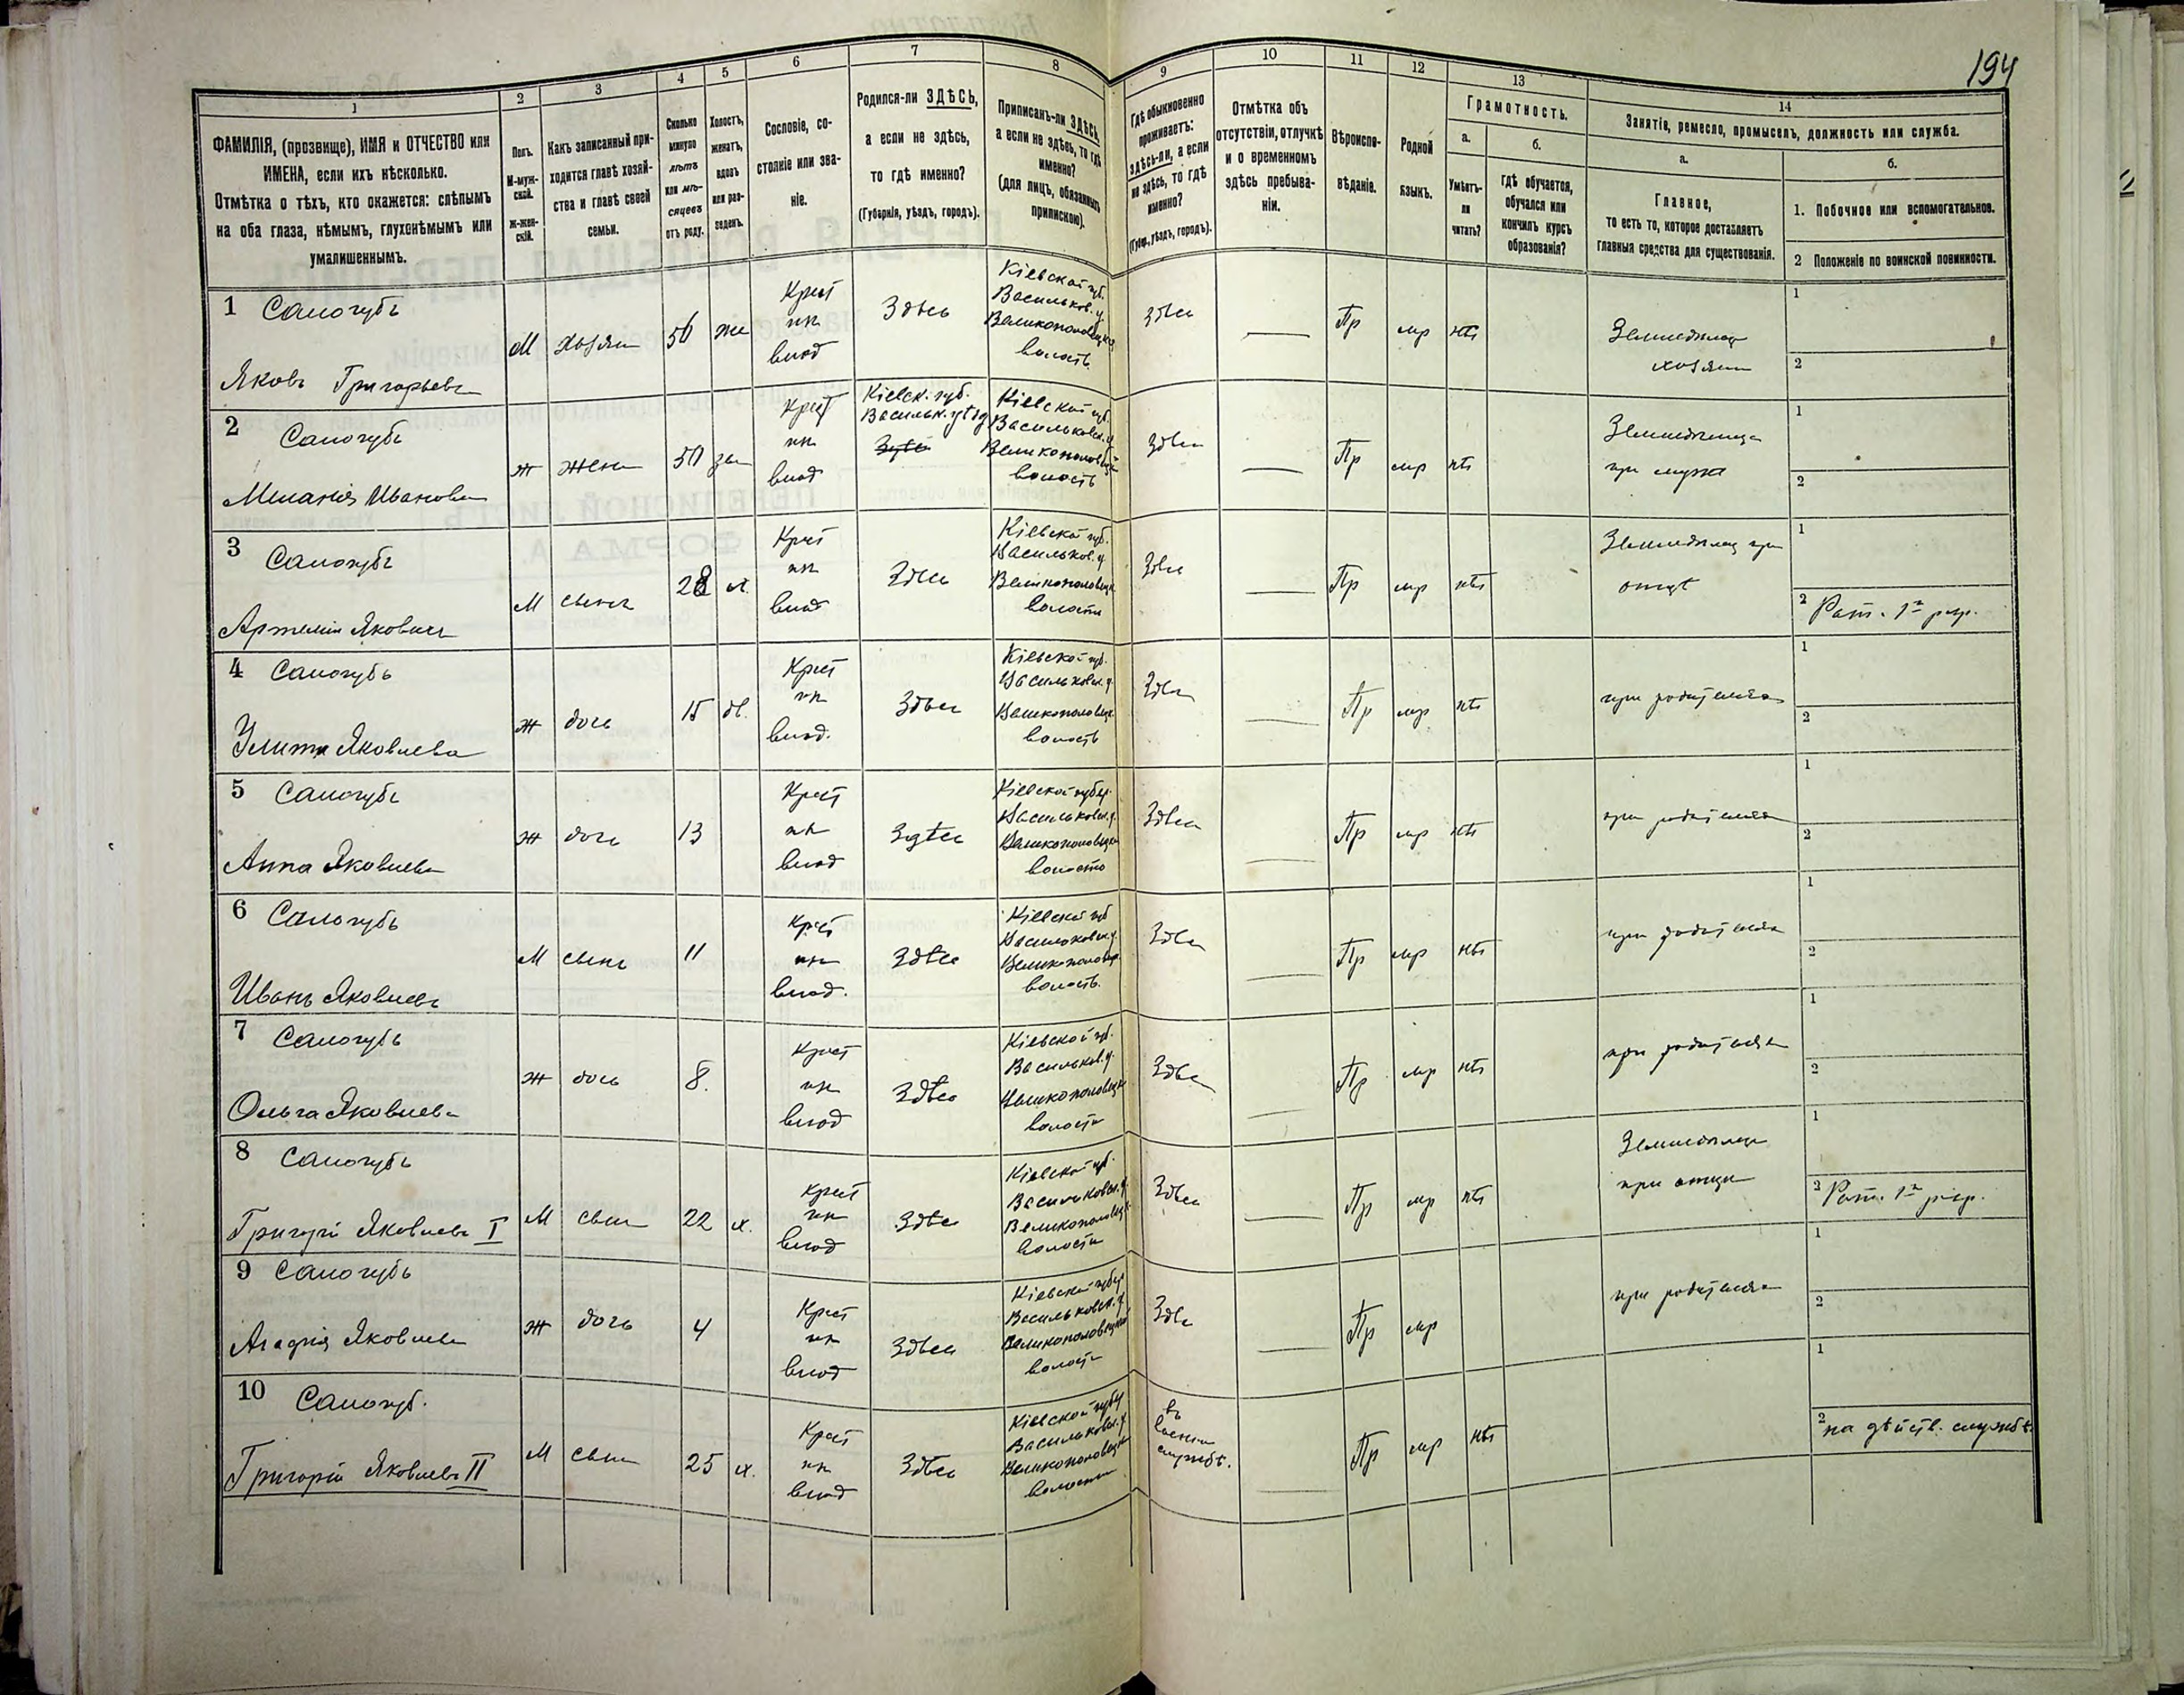 194
1
2
3
4
5
6
7
8
9
10
11
12
13
14
ФАМИЛІЯ, (прозвище), ИМЯ и ОТЧЕСТВО или
ИМЕНА, если ихъ нѣсколько.
Отмѣтка о тѣхъ, кто окажется: слѣпымъ
на оба глаза, нѣмымъ, глухонѣмымъ или
умалишеннымъ.
Полъ.
М-муж-
ской.
Ж-жен-
скій.
Какъ записанный при-
ходится главѣ хозяй-
ства и главѣ своей
семьи.
Сколько
минуло
лѣтъ
или мѣ-
сяцевъ
отъ роду.
Холостъ,
женатъ,
вдовъ
или раз-
веденъ.
Сословіе, со-
стояніе или зва-
ніе.
Родился-ли ЗДѢСЬ,
а если не здѣсь,
то гдѣ именно?
(Губернія, уѣздъ, городъ).
Приписанъ-ли ЗДѢСЬ,
а если не здѣсь, то гдѣ
именно?
(для лицъ, обязанныхъ
припискою).
Гдѣ обыкновенно
проживаетъ:
здѣсь-ли, а если
не здѣсь, то гдѣ
именно?
(Губер., уѣздъ, городъ).
Отмѣтка объ
отсутствіи, отлучкѣ
и о временномъ
здѣсь пребыва-
ніи.
Вѣроиспо-
вѣданіе.
Родной
языкъ.
Грамотность.
а.
б.
Умѣетъ-
ли
читать?
гдѣ обучается,
обучался или
кончилъ курсъ
образованія?
Занятіе, ремесло, промыселъ, должность или служба.
а.
б.
Главное,
то есть то, которое доставляетъ
главныя средства для существованія.
1. Побочное или вспомогательное.
2 Положеніе по воинской повинности.
1 Самогубъ
Яковъ Григорьевъ
М хозяин 50 же
Крест
ик
влад
Здѣсь
Кіевской губ.
Васильков. у.
Великополовецкая
волость.
Здѣсь — Пр мр нѣт
Земледѣлец
хозяин
1
2
2 Самогубъ
Меланія Иванова
ж жена 50 за
Крест
ик
влад
Кіевск. губ.
Васильк. уѣзд
Кіевской губ.
Васильковск. у
Великополовецк
волость
Здѣсь — Пр мр нѣт
Земледѣлица
при мужѣ
1
2
3 Самогубъ
Артемій Яковлевъ
М сынъ 28 х.
Крест
ик
влад
Здѣсь
Кіевской губ.
Васильков. у.
Великополовецк.
волости
Здѣсь — Пр мр нѣт
Земледѣлец при
отцѣ
1
2 Рат. 1го разр.
4 Самогубъ
Улита Яковлева
ж дочь 15 дѣ.
Крест
ик
влад.
Здѣсь
Кіевской губ.
Васильковск. у.
Великополовецк.
волость
Здѣсь — Пр мр нѣт
при родителях
1
2
5 Самогубъ
Анна Яковлева
ж дочь 13
Крест
ик
влад
Здѣсь
Кіевской губер.
Васильковск. у.
Великополовецк
волости
Здѣсь — Пр мр нѣт
при родителях
1
2
6 Самогубъ
Иванъ Яковлевъ
М сынъ 11
Крест
ик
влад.
Здѣсь
Кіевской губ
Васильковск. у.
Великополовецк.
волость.
Здѣсь — Пр мр нѣт
при родителях
1
2
7 Самогубъ
Ольга Яковлева
ж дочь 8.
Крест
ик
влад
Здѣсь
Кіевской губ.
Васильков. у.
Великополовецк
волости
Здѣсь — Пр мр нѣт
при родителях
1
2
8 Самогубъ
Григорій Яковлевъ I
М сын 22 х.
Крест
ик
влад
Здѣсь
Кіевской губ.
Васильковск. у.
Великополовецк.
волости
Здѣсь — Пр мр нѣт
Земледѣлец
при отцѣ
1
2 Рат. 1го разр.
9 Самогубъ
Агафія Яковлева
ж дочь 4
Крест
ик
влад
Здѣсь
Кіевской губер
Васильковск. у
Великополовецкой
волости
Здѣсь — Пр мр
при родителях
1
2
10 Самогуб.
Григорій Яковлевъ II
М сын 25 х.
Крест
ик
влад
Здѣсь
Кіевской губер
Васильковск. у.
Великополовецк
волости
въ
военн
службѣ.
— Пр мр нѣт
1
2 на дѣйств. службѣ.